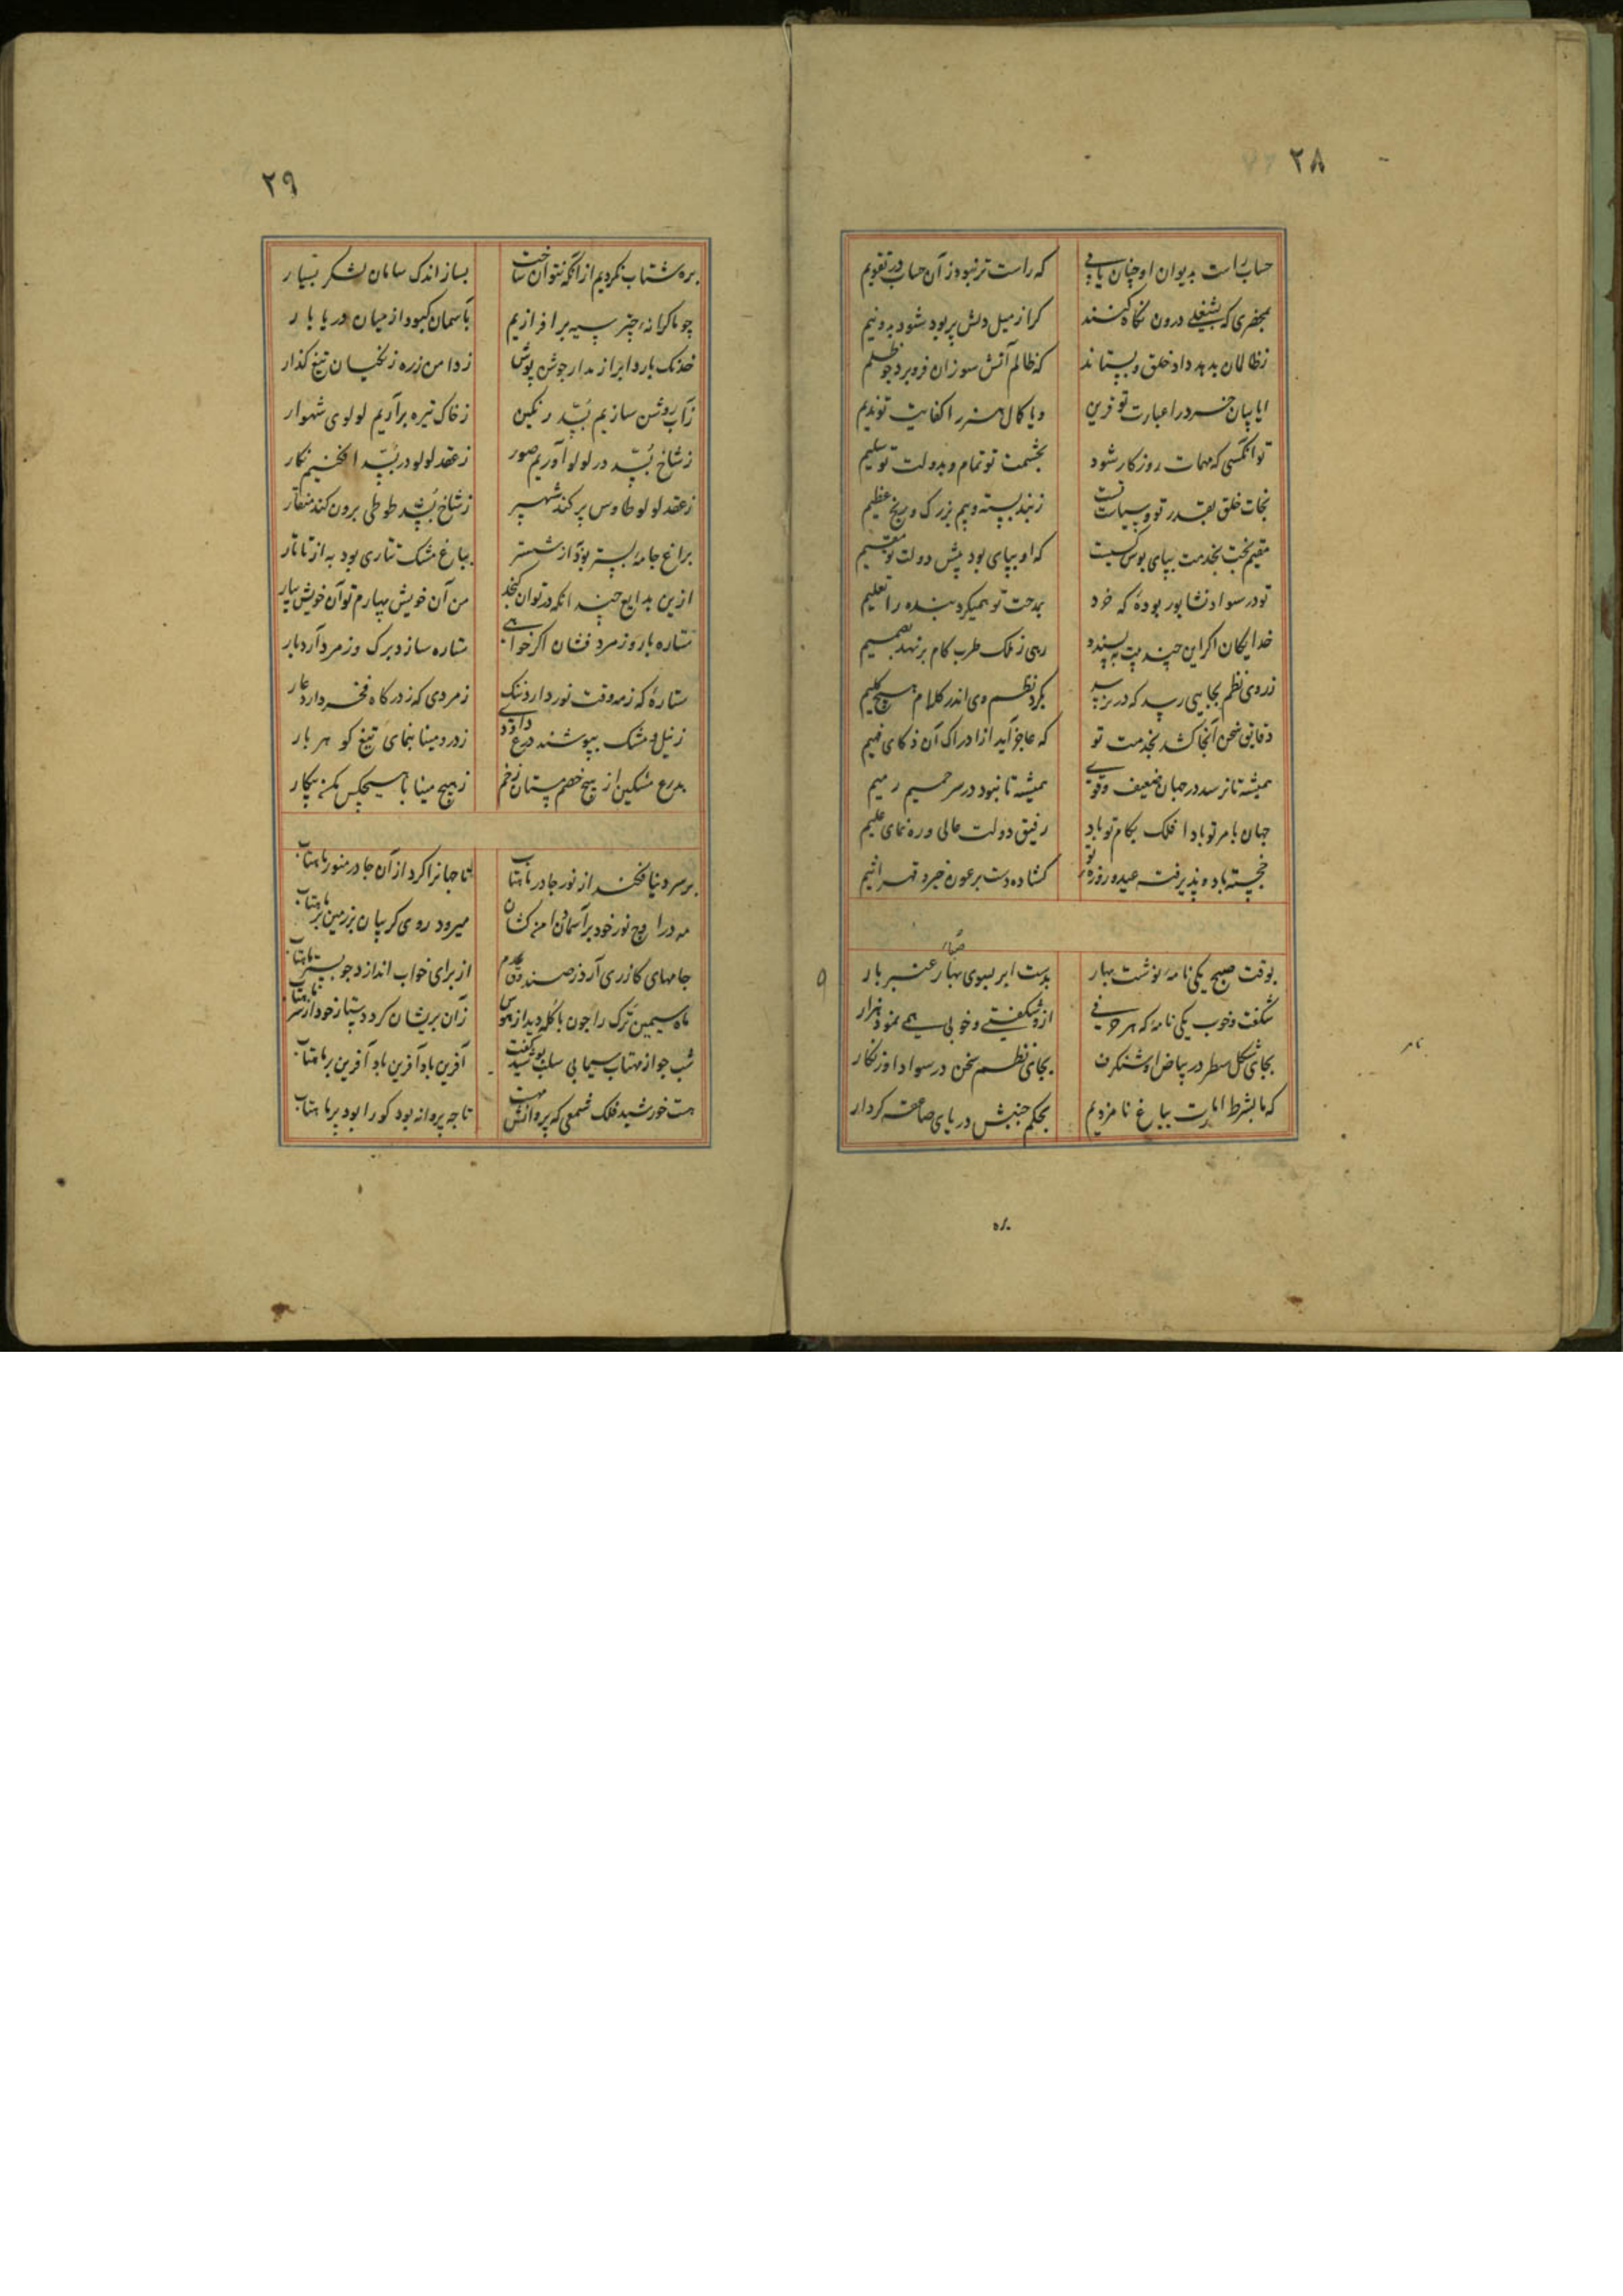 ۲۸
حساب راست بدیوان او چنان یابی که راست تر نبود زان حساب در تقویم
کرا ز میل دلش پر بود شود بدو نیم
ز ظالمان بدهد داد خلق و بستاند که ظالم آتش سوزان فرو برد چو ظلیم
ایا بیان خرد را عبارت تو قرین و یا کمال هنر را کفایت تو ندیم
تو آنکسی که مهمات روزکار شود بحشمت تو تمام و بدولت تو سلیم
نجات خلق بقدر تو و سیاست تست ز بند بسته و بیم بزرک و رنج عظیم
مقیم بخت بخدمت بپای بوس تست که او بپای بود پیش دولت تو مقیم
تو در سواد نشابور بودهٔ که خرد بمدحت تو همیکرد بنده را تعلیم
خدایکان اکر این چند بیت بپسندد رهی ز فلک طرب کام برنهد بصمیم
ز روی نظم بجایی رسد که در نرسد بکرد نظم وی اندر کلام هیچ کلیم
دقایق سخن آنجا کشد بخدمت تو که عاجز آید از ادراک آن ذکای فهیم
همیشه تا نرسد در جهان ضعیف و قوی همیشه تا نبود در سر حسیم رمیم
جهان بامر تو بادا فلک بکام تو باد رفیق دولت عالی و رهنمای علیم
خجسته باد و پذیرفته عید و روزهٔ تو کشاده دست برعون خیر و قهر اثیم
بوقت صبح یکی نامهٔ نوشت بهار بدست ابر بسوی بهار عنبر بار
شکفت و خوب یکی نامهٔ که هر حرفی ازو شکفتی و خوبی همی نمود هزار
بجای شکل سطر در بیاض او شنکرف بجای نظم سخن در سواد او زنکار
که ما بشرط امارت بباغ نامزدیم بحکم جنبش دریای صاعقه کردار
بره
۲۹
بره شتاب نکردیم از آنکه نتوان ساخت بساز اندک سامان لشکر بسیار
چو ما کرانهٔ چتر سیه برافرازیم بآسمان کبود از میان دریا بار
خدنک بارد ابر از مدار جوشن پوش ز دامن زره زنکیان تیغ کذار
ز آب روشن سازیم بسد رنکین ز خاک تیره برآریم لولوی شهوار
ز شاخ بسد در لولو آوریم صور ز عقد لولو در بسد افکنیم نکار
ز عقد لولو طاوس پر کند شهپر ز شاخ بسد طوطی برون کند منقار
براغ جامه بستر بود از ششتر بباغ مشک تتاری بود به از تاتار
ازین بدایع چندانکه در توان کنجد من آن خویش بیارم تو آن خویش بیار
ستاره بار و زمرد فشان اکر خواهی ستاره سازد برک و زمرد آرد بار
ستارهٔ که ز مه وقت نور دارد ننک زمردی که ز درکاه فخر دارد عار
ز نیل و مشک بپوشند درع داودی ز درد مینا بنمای تیغ کوهر بار
بدرع مشکین از هیچ خصم مستان زخم ز هیچ مینا با هیچکس مکن پیکار
بر سر دنیا فکند از نور چادر ماهتاب تا جهانرا کرد از آن چادر منور ماهتاب
مه در اوج نور خود بر آسمان دامن کشان میرود روی کریبان بر زمین بر ماهتاب
جامهای کازری آرد ز صندوق عدم از برای خواب اندازد چو بستر ماهتاب
ماه سیمین ترک را چون با کله دید از هوس زان پریشان کرد دستار خود از سر ماهتاب
شب چو از مهتاب سیمابی سلب پوشید کفت آفرین باد آفرین باد آفرین بر ماهتاب
هست خورشید فلک شمعی که پروانش مهست تا چه پروانه بود کورا بود پر ماهتاب